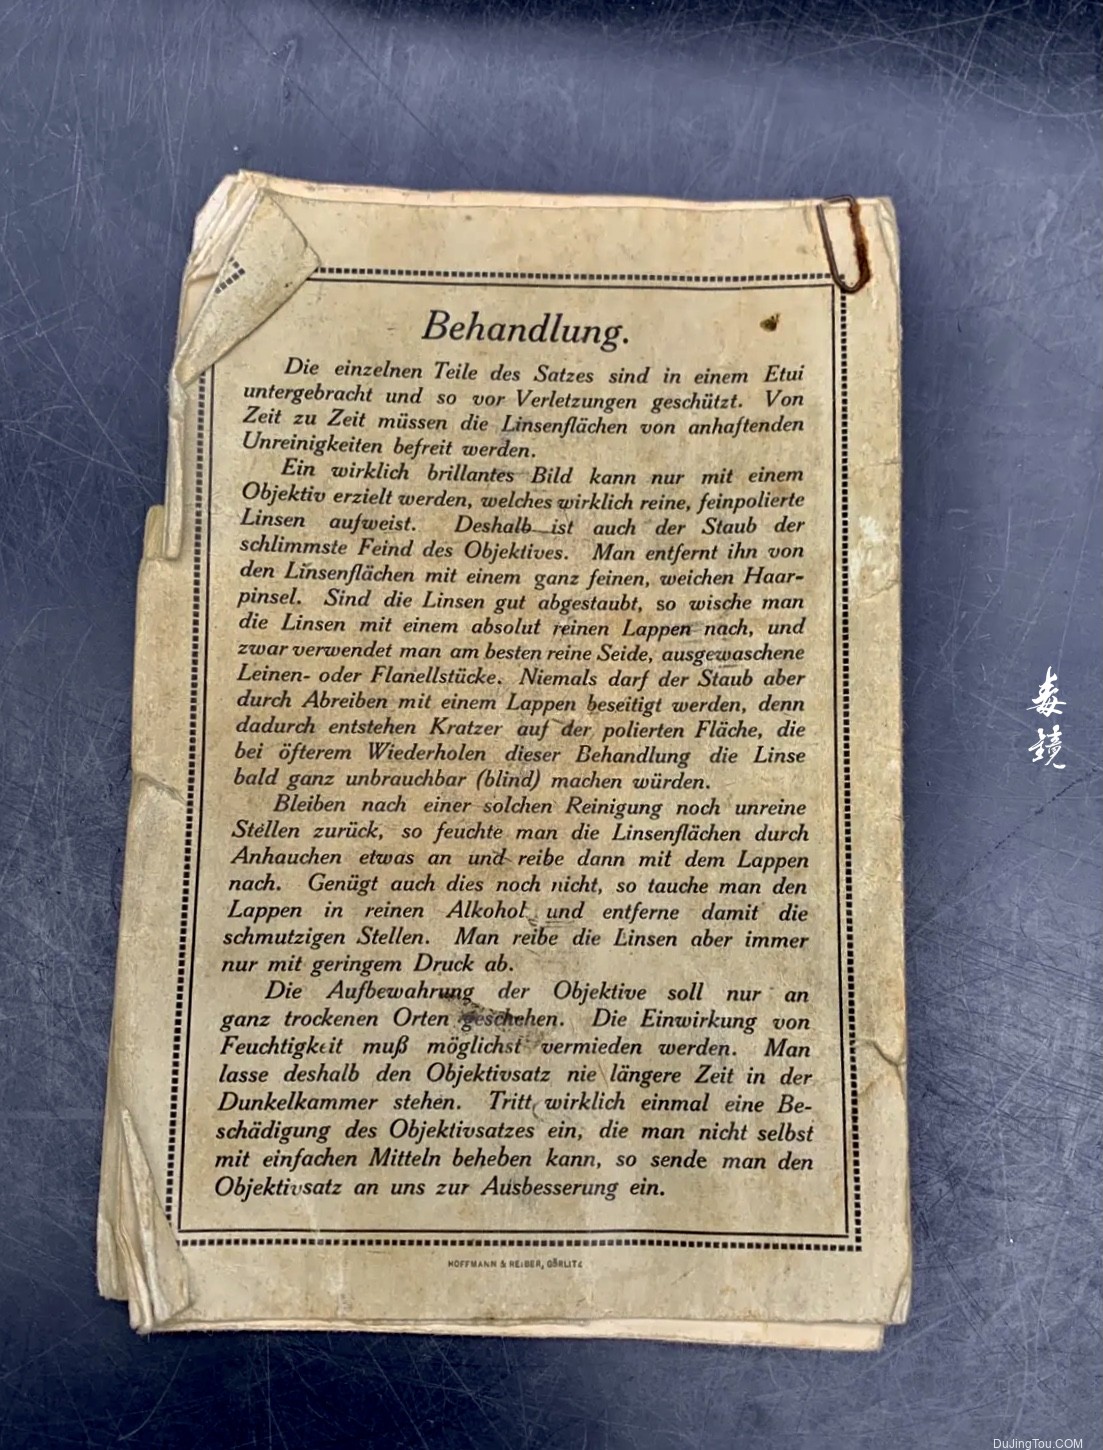 Behandlung.
Die einzelnen Teile des Satzes sind in einem Etui
untergebracht und so vor Verletzungen geschützt. Von
Zeit zu Zeit müssen die Linsenflächen von anhaftenden
Unreinigkeiten befreit werden.
Ein wirklich brillantes Bild kann nur mit einem
Objektiv erzielt werden, welches wirklich reine, feinpolierte
Linsen aufweist. Deshalb ist auch der Staub der
schlimmste Feind des Objektives. Man entfernt ihn von
den Linsenflächen mit einem ganz feinen, weichen Haar-
pinsel. Sind die Linsen gut abgestaubt, so wische man
die Linsen mit einem absolut reinen Lappen nach, und
zwar verwendet man am besten reine Seide, ausgewaschene
Leinen- oder Flanellstücke. Niemals darf der Staub aber
durch Abreiben mit einem Lappen beseitigt werden, denn
dadurch entstehen Kratzer auf der polierten Fläche, die
bei öfterem Wiederholen dieser Behandlung die Linse
bald ganz unbrauchbar (blind) machen würden.
Bleiben nach einer solchen Reinigung noch unreine
Stellen zurück, so feuchte man die Linsenflächen durch
Anhauchen etwas an und reibe dann mit dem Lappen
nach. Genügt auch dies noch nicht, so tauche man den
Lappen in reinen Alkohol und entferne damit die
schmutzigen Stellen. Man reibe die Linsen aber immer
nur mit geringem Druck ab.
Die Aufbewahrung der Objektive soll nur an
ganz trockenen Orten geschehen. Die Einwirkung von
Feuchtigkeit muß möglichst vermieden werden. Man
lasse deshalb den Objektivsatz nie längere Zeit in der
Dunkelkammer stehen. Tritt wirklich einmal eine Be-
schädigung des Objektivsatzes ein, die man nicht selbst
mit einfachen Mitteln beheben kann, so sende man den
Objektivsatz an uns zur Ausbesserung ein.
HOFFMANN & REIBER, GÖRLITZ
毒镜
DuJingTou.COM